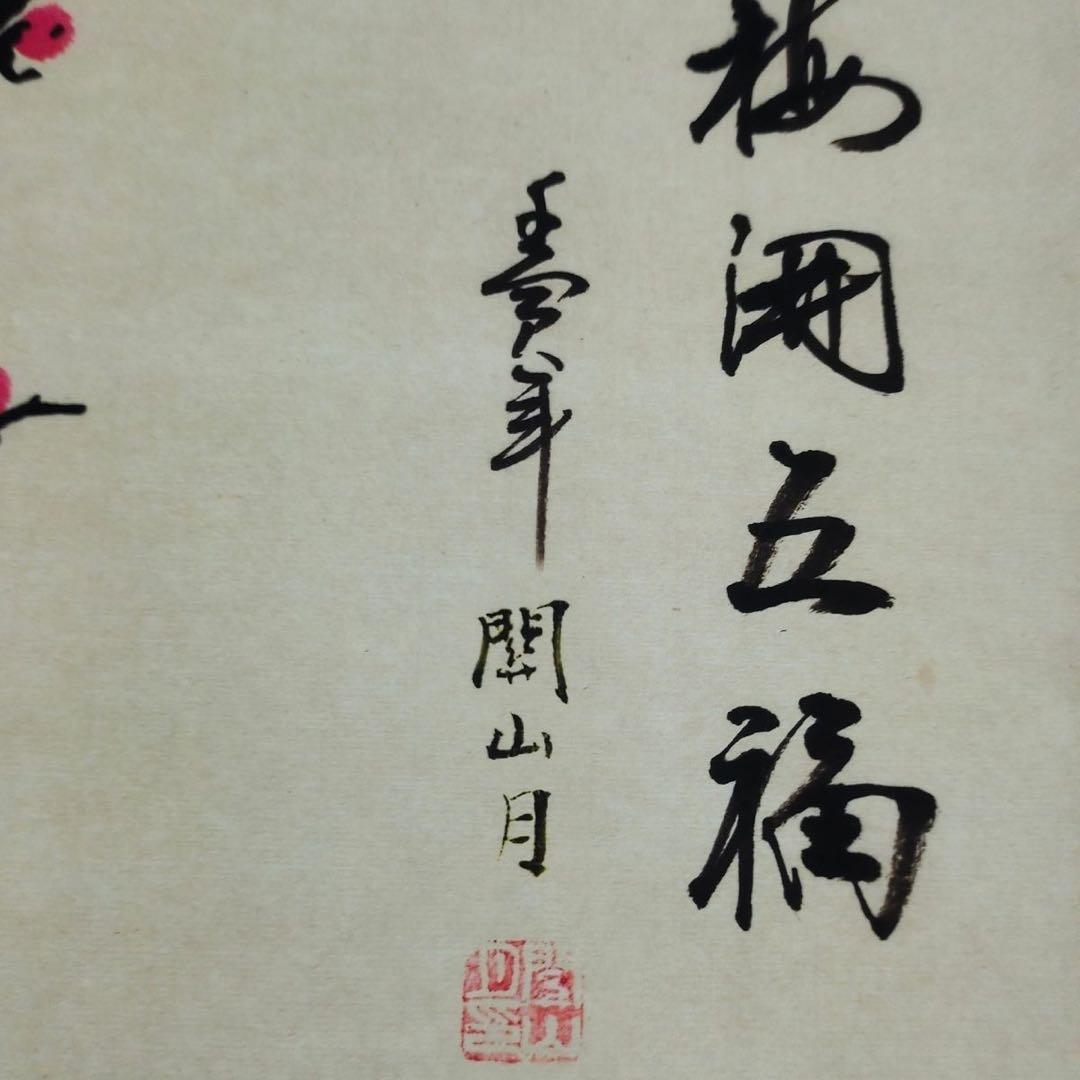 梅開五福
壬寅年
關山月